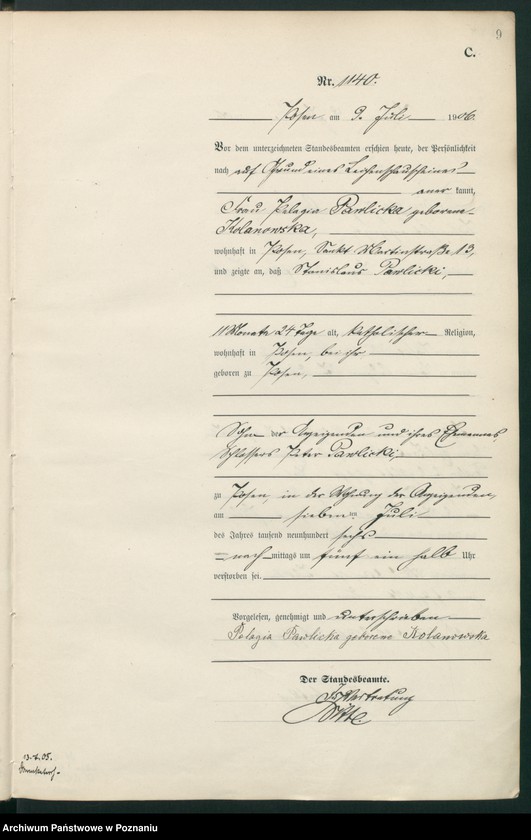 9
C.
Nr. 1140.
Posen am 9. Juli 1906.
Vor dem unterzeichneten Standesbeamten erschien heute, der Persönlichkeit
nach auf Grund eines Leichenschauscheines
aner kannt,
Frau Pelagia Pawlicka geborene
Kolanowska,
wohnhaft in Posen, Sankt Martinstraße 13,
und zeigte an, daß Stanislaus Pawlicki,
11 Monate 24 Tage alt, katholischer Religion,
wohnhaft in Posen, bei ihr
geboren zu Posen,
Sohn der Anzeigenden und ihres Ehemannes,
Schlossers Peter Pawlicki,
zu Posen, in der Wohnung der Anzeigenden,
am sieben ten Juli
des Jahres tausend neunhundert sechs
nach mittags um fünf ein halb Uhr
verstorben sei.
Vorgelesen, genehmigt und unterschrieben
Pelagia Pawlicka geborene Kolanowska
Der Standesbeamte.
In Vertretung
13. 8. 05.
Archiwum Państwowe w Poznaniu